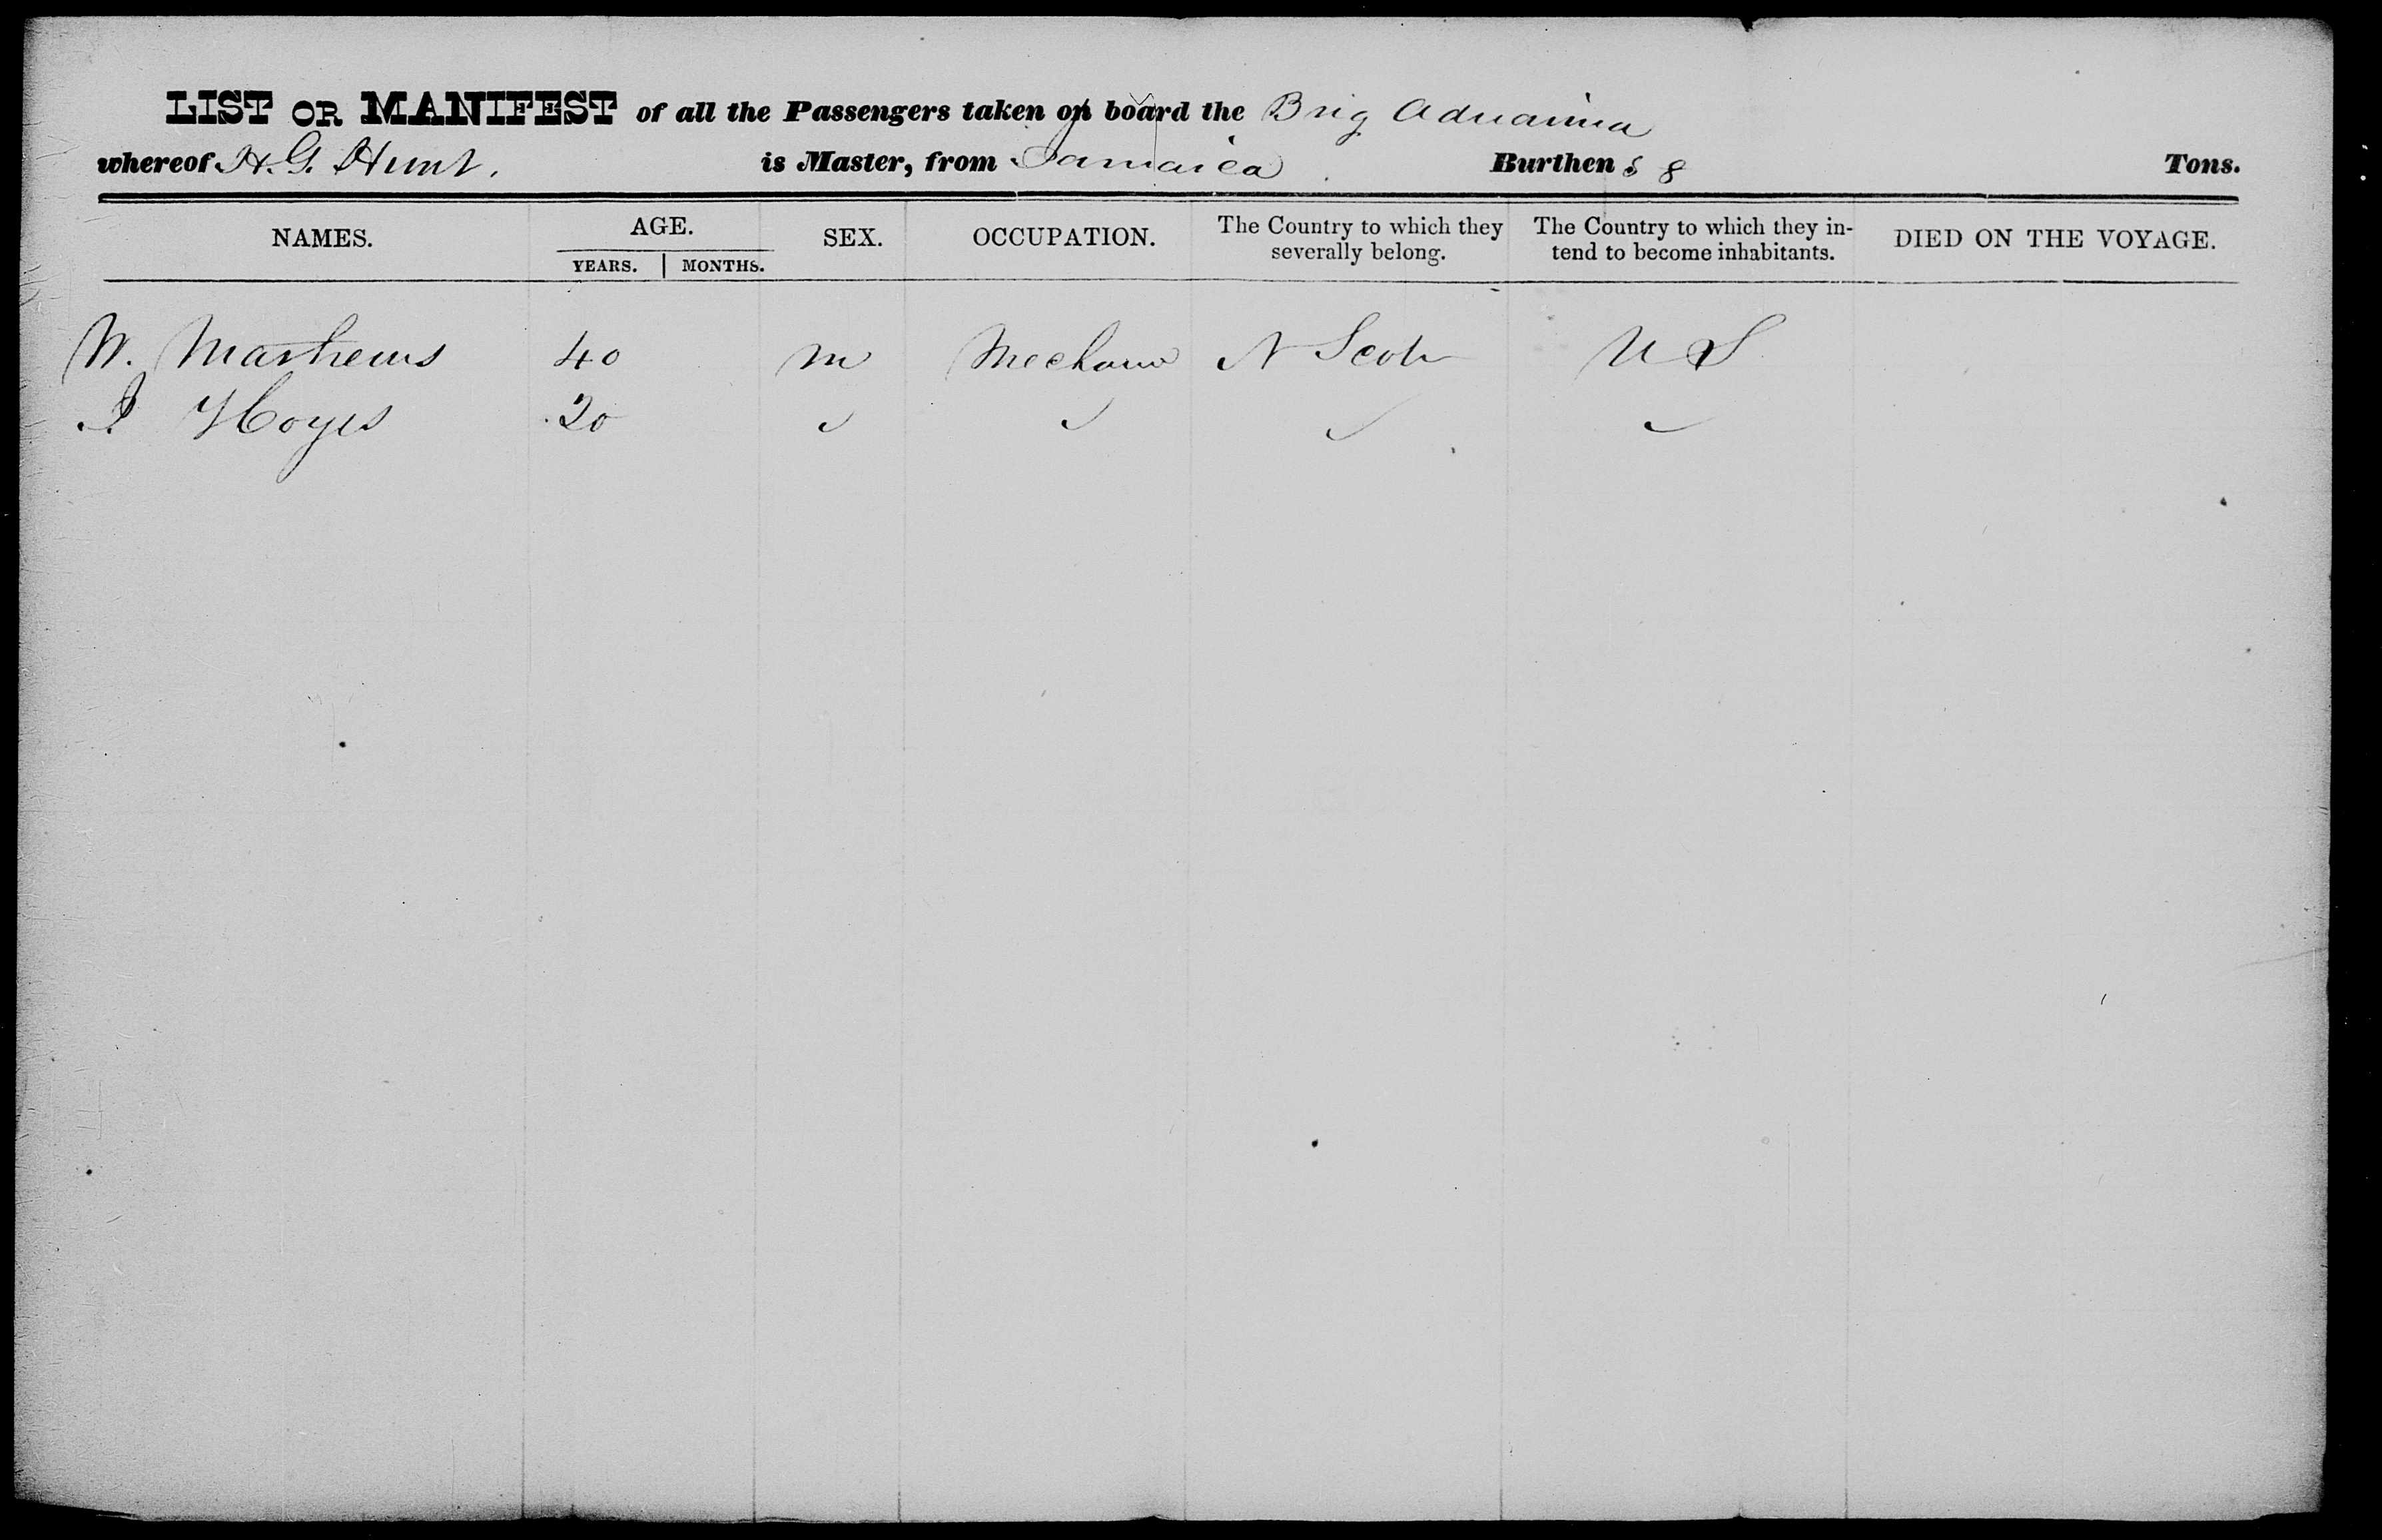 LIST OR MANIFEST of all the Passengers taken on board the Brig
whereof H. G. Hunt. is Master, from Jamaica Burthen 8 Tons.
NAMES. AGE. SEX. OCCUPATION. The Country to which they severally belong. The Country to which they in-tend to become inhabitants. DIED ON THE VOYAGE.
YEARS. MONTHS.
W. Mathews 40 m N Scot U S
J Hoyes 20 ✓ ✓ ✓ ✓